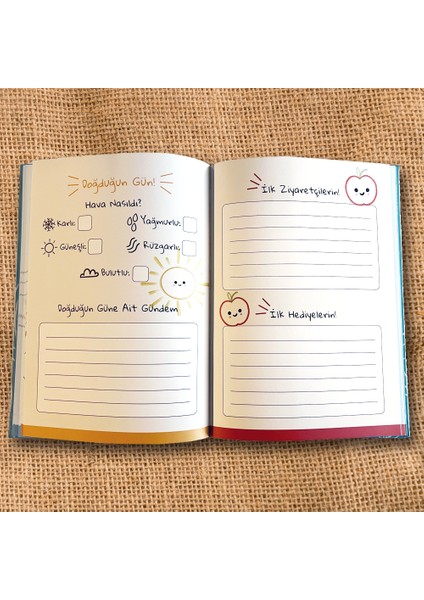 Doğduğun Gün!
Hava Nasıldı?
Karlı:
Yağmurlu:
Güneşli:
Rüzgarlı:
Bulutlu:
Doğduğun Güne Ait Gündem
İlk Ziyaretçilerin!
İlk Hediyelerin!